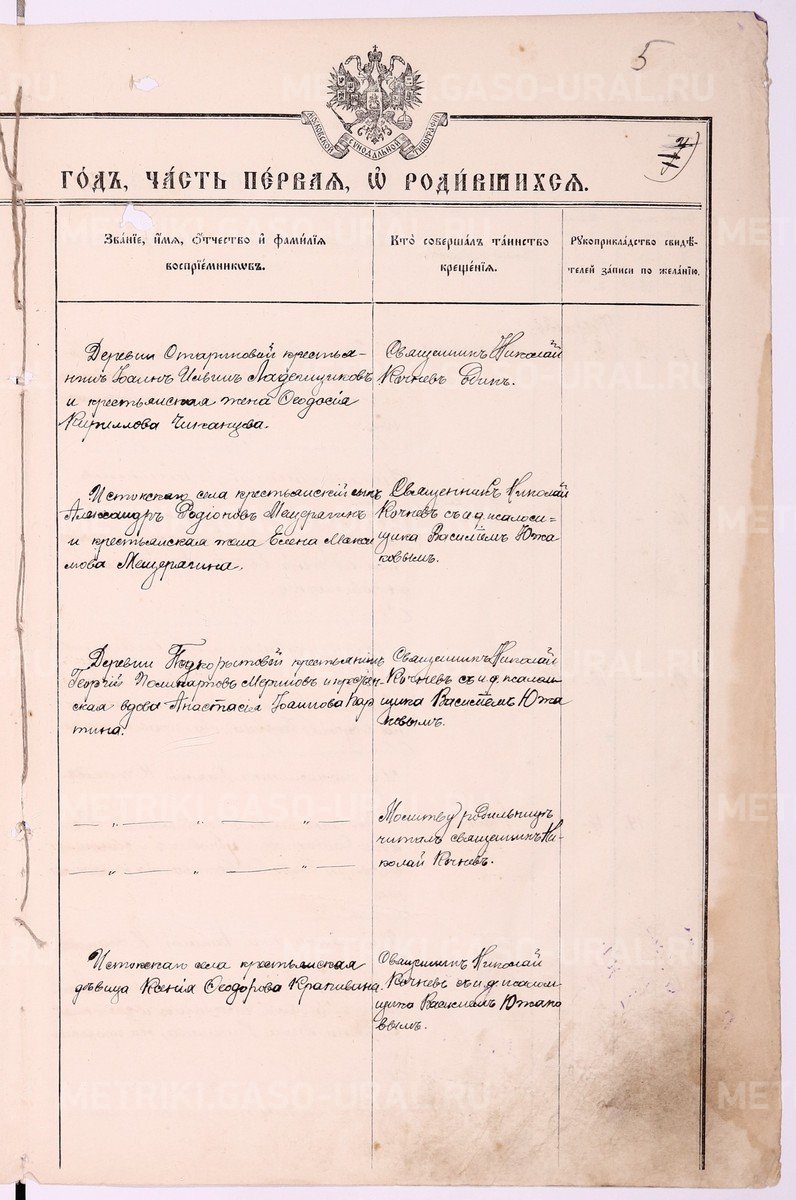 5
МОСКОВСКОЙ СѴНОДАЛЬНОЙ ТИПОГРАФІИ
ГО́ДЪ, ЧА́СТЬ ПЕ́РВАЯ, Ѡ҆ РОДИ́ВШИХСѦ.
Зва́нїе, и҆́мѧ, ѻ҆́тчество и҆ фамилїѧ
воспрїе́мникѡвъ.
Кто̀ соверша́лъ та́инство
креще́нїѧ.
Рꙋкоприкла́дство свидѣ́-
телей за́писи по жела́нїю.
Деревни крестья-
нинъ Іоаннъ Ильинъ Ладейщиковъ
и крестьянская жена Ѳеодосія
Кириллова
Священникъ Николай
Кочневъ Одинъ.
Истокскаго села крестьянскій сынъ
Александръ Родіоновъ Мещерягинъ
и крестьянская жена Елена Макси
мова Мещерягина.
Священникъ Николай
Кочневъ съ и.д. псалом-
щика Василіемъ Южа
ковымъ.
Деревни Подкорытовой крестьянинъ
Георгій Поликарповъ и крестьян-
ская вдова Анастасія Іоаннова
Священникъ Николай
Кочневъ съ и.д. псалом
щика Василіемъ Южа
ковымъ.
— „ — „ — „ —
Молитву родильницѣ
читалъ священникъ Ни-
колай Кочневъ.
— „ — „ — „ —
Истокскаго села крестьянская
дѣвица Ксенія Ѳеодорова Крапивина.
Священникъ Николай
Кочневъ съ и.д. псалом
щика Василіемъ Южако
вымъ.
METRIKI.GASO-URAL.RU